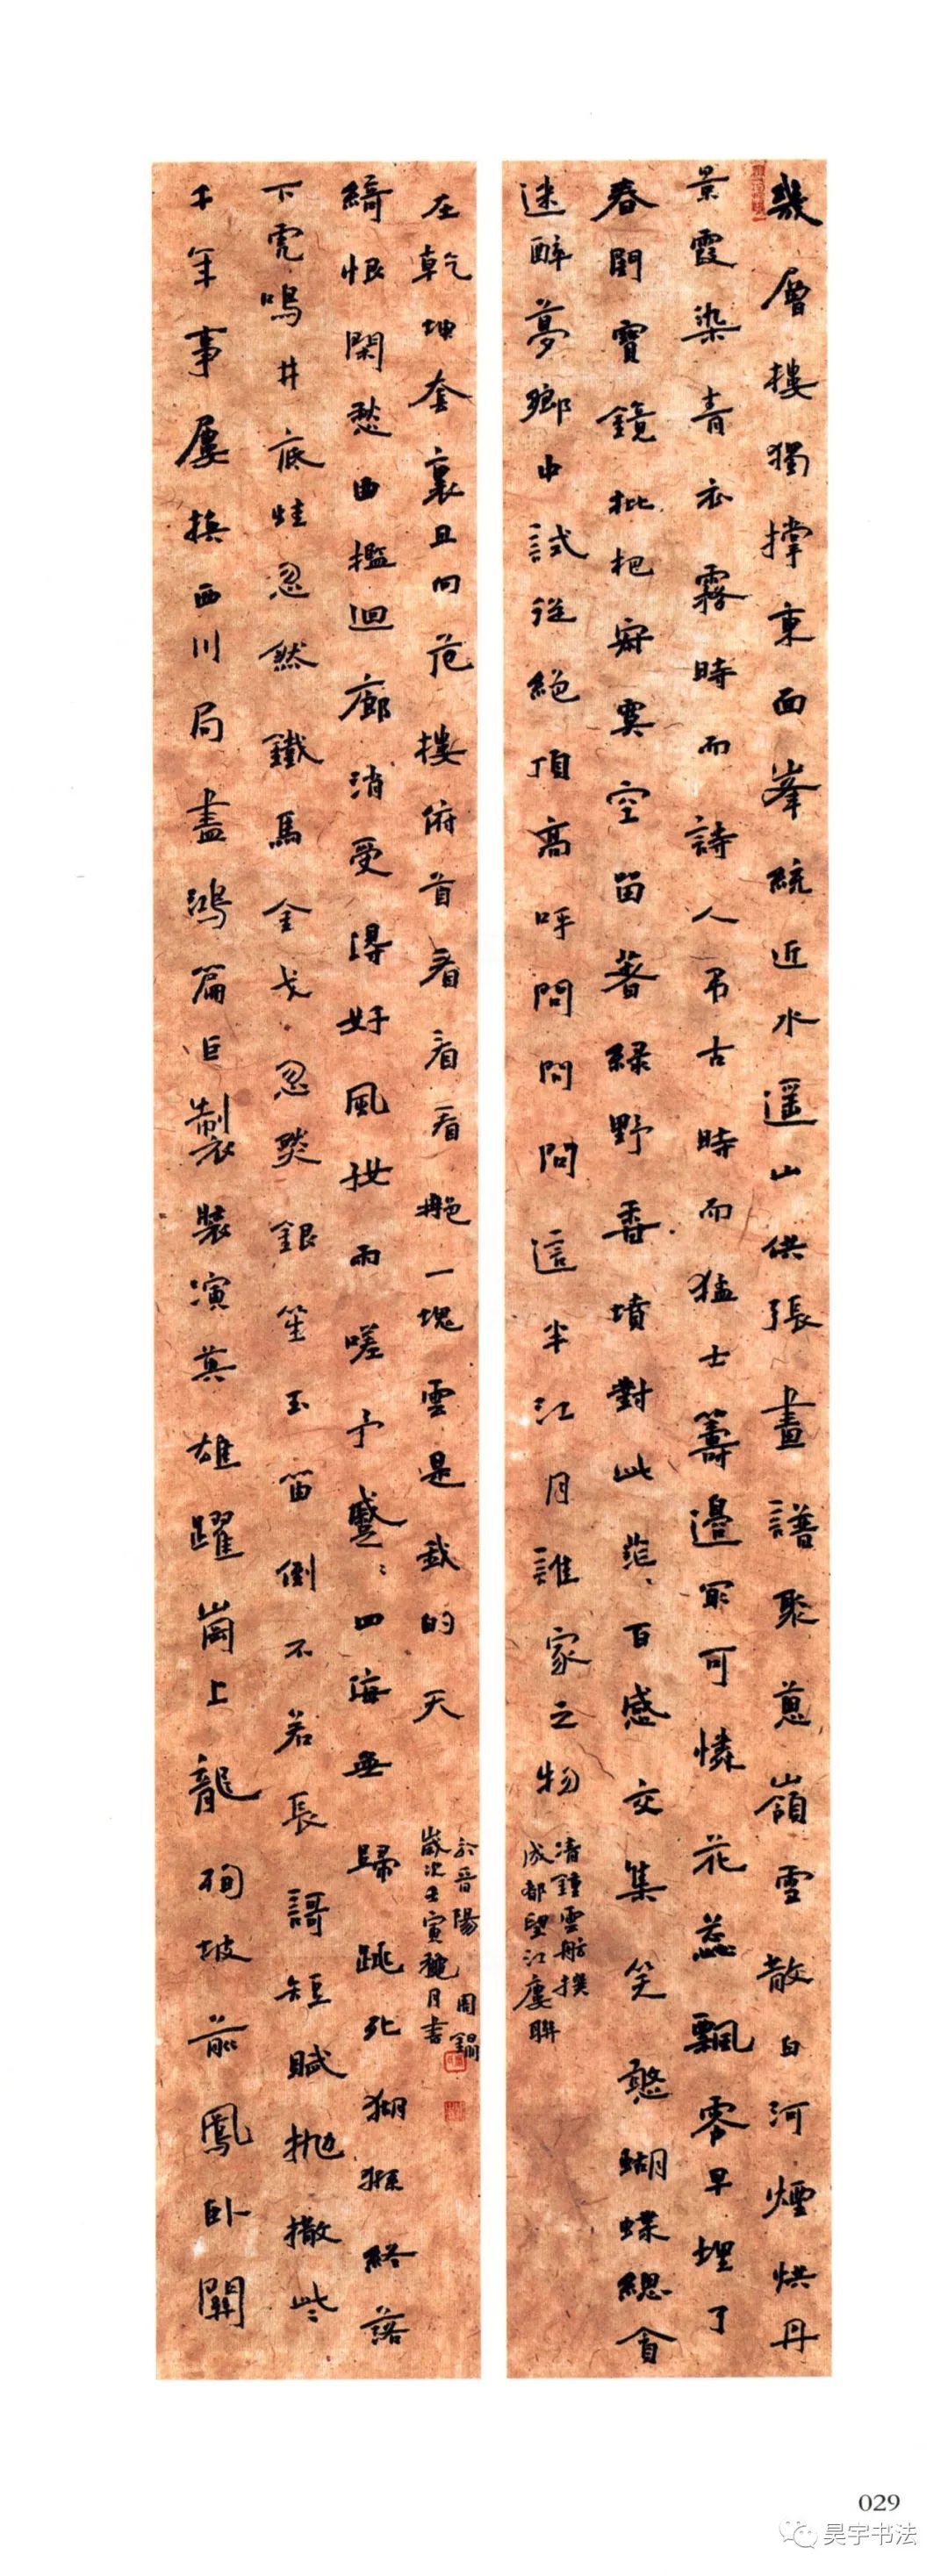 幾層樓獨撐東面峯統近水遥山供張畫譜聚蔥嶺雪散白河煙烘丹
景霞染青衣霧時而詩人弔古時而猛士籌邊冣可憐花蕊飄零早埋了
春閨寶鏡枇杷寂寞空留著綠野香墳對此茫々百感交集笑憨蝴蝶總貪
迷醉夢鄉中試從絕頂高呼問問問這半江月誰家之物
清鍾雲舫撰
成都望江廔聯
千年事屢換西川局盡鴻篇巨製裝演英雄躍崗上龍殉坡前鳳臥關
下虎鳴井底蛙忽然鐵馬金戈忽然銀笙玉笛倒不若長謌短賦拋撒些々
綺恨閑愁曲檻迴廊消受得好風好雨嗟予蹙々四海無歸跳死猢猻終落
在乾坤套裏且向危樓俯首看看看那一塊雲是我的天
歲次壬寅穐月書
於晉陽 周鐧
029
昊宇书法